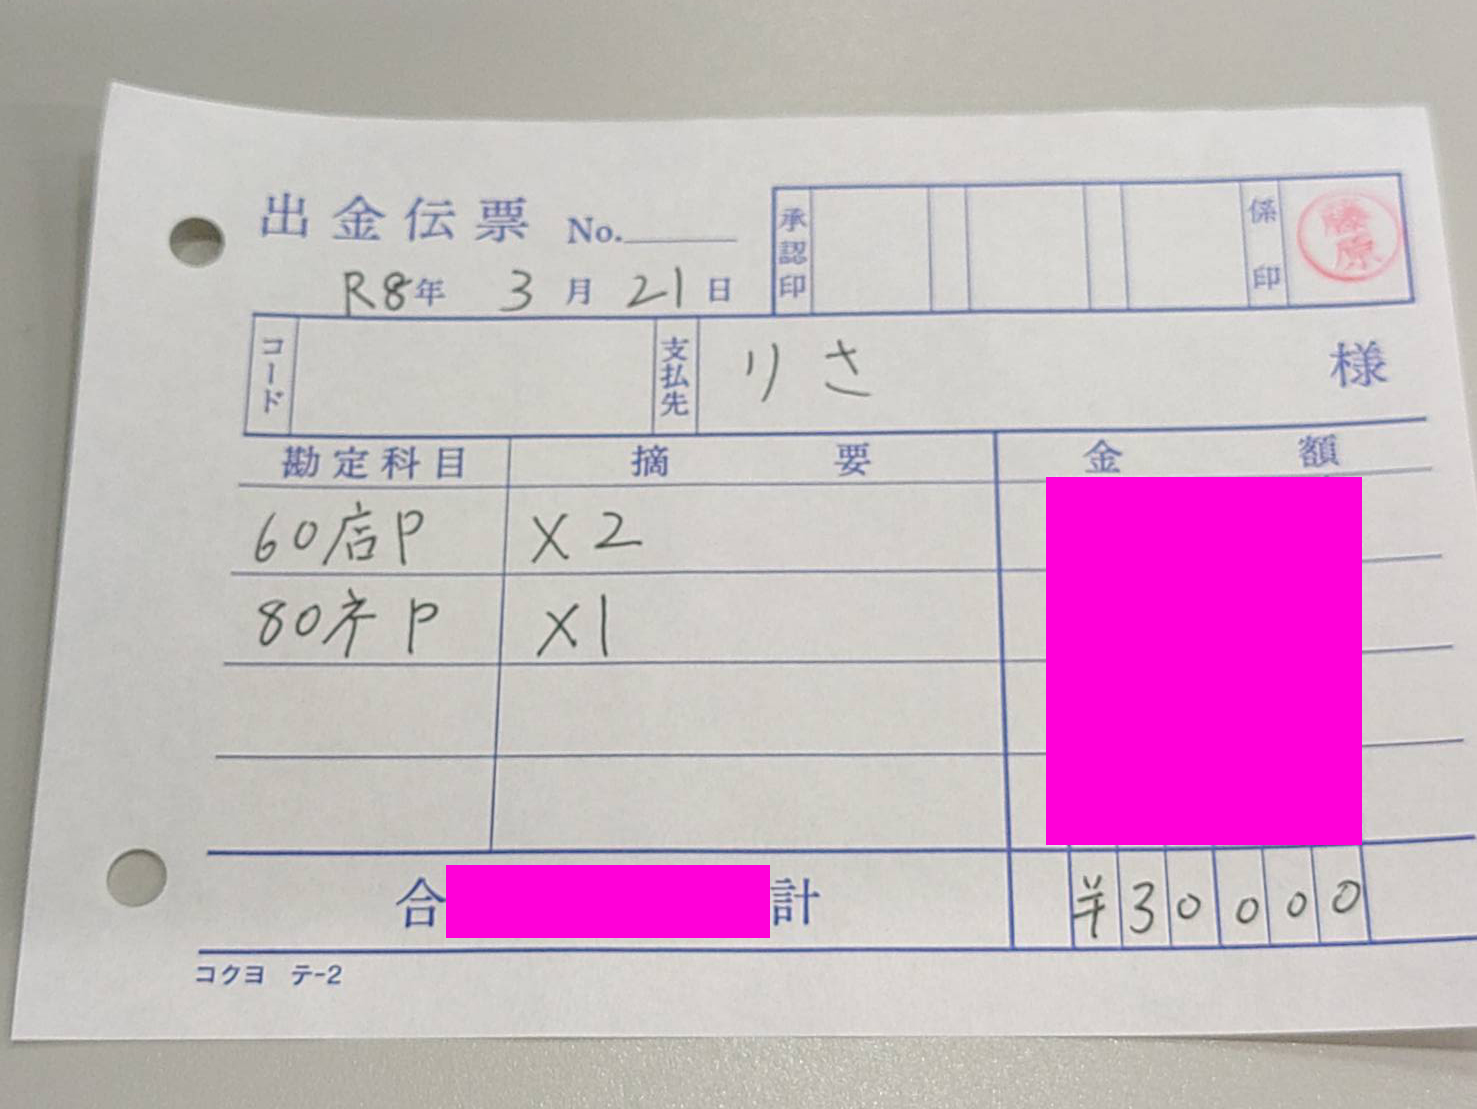 出金伝票 No.
承認印
係印
藤原
R8年 3月 21日
コード
支払先 りさ 様
勘定科目 摘要 金額
60店P X2
80斉P X1
合計 ¥30000
コクヨ テ-2